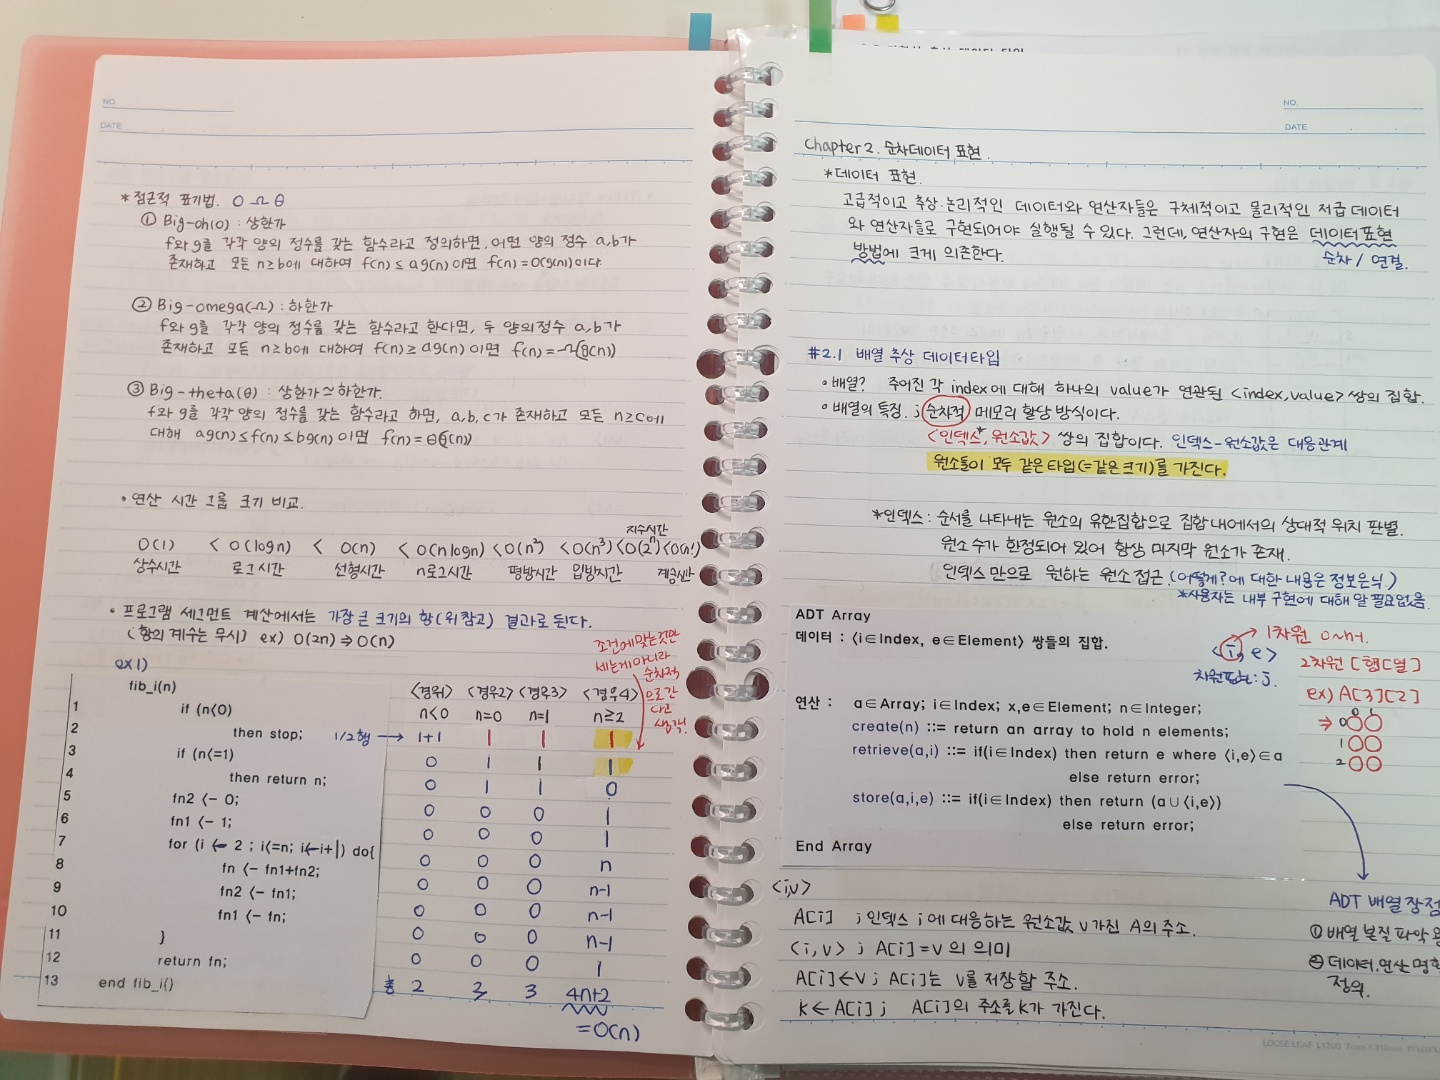 NO.
DATE
*점근적 표기법. O Ω θ
① Big-oh(O) : 상한가
f와 g를 각각 양의 정수를 갖는 함수라고 정의하면, 어떤 양의 정수 a,b가
존재하고 모든 n≥b에 대하여 f(n) ≤ ag(n) 이면 f(n) = O(g(n)) 이다.
② Big-omega(Ω) : 하한가
f와 g를 각각 양의 정수를 갖는 함수라고 한다면, 두 양의 정수 a,b가
존재하고 모든 n≥b에 대하여 f(n) ≥ ag(n) 이면 f(n) = Ω(g(n))
③ Big-theta(θ) : 상한가 ≃ 하한가.
f와 g를 각각 양의 정수를 갖는 함수라고 하면, a,b,c가 존재하고 모든 n≥c에
대해 ag(n) ≤ f(n) ≤ bg(n) 이면 f(n) = θ(g(n))
• 연산 시간 그룹 크기 비교.
지수시간
O(1) < O(logn) < O(n) < O(nlogn) < O(n²) < O(n³) < O(2ⁿ) < O(n!)
상수시간 로그시간 선형시간 n로그시간 평방시간 입방시간 계승시간
• 프로그램 세그먼트 계산에서는 가장 큰 크기의 항(위 참고) 결과로 된다.
(항의 계수는 무시) ex) O(2n) ⇒ O(n)
조건에 맞는것만
세는게 아니라
순차적
으로 간
다고
생각.
ex1)
fib_i(n)
<경우1> <경우2> <경우3> <경우4>
n<0 n=0 n=1 n≥2
1 if (n<0)
2 then stop; 1/2행 → 1+1 1 1 1
3 if (n<=1) 0 1 1 1
4 then return n; 0 1 1 0
5 fn2 <- 0; 0 0 0 1
6 fn1 <- 1; 0 0 0 1
7 for (i ← 2 ; i<=n; i←i+1) do{ 0 0 0 n
8 fn <- fn1+fn2; 0 0 0 n-1
9 fn2 <- fn1; 0 0 0 n-1
10 fn1 <- fn; 0 0 0 n-1
11 } 
12 return fn; 0 0 0 1
13 end fib_i() 총 2 3 3 4n+2
=O(n)
NO.
DATE
Chapter 2. 순차데이터 표현.
*데이터 표현.
고급적이고 추상·논리적인 데이터와 연산자들은 구체적이고 물리적인 저급 데이터
와 연산자들로 구현되어야 실행될 수 있다. 그런데, 연산자의 구현은 데이터 표현
방법에 크게 의존한다. 순차 / 연결.
#2.1 배열 추상 데이터타입
• 배열? 주어진 각 index에 대해 하나의 value가 연관된 <index,value> 쌍의 집합.
• 배열의 특징. ; 순차적 메모리 할당 방식이다.
<인덱스*, 원소값> 쌍의 집합이다. 인덱스-원소값은 대응관계
원소들이 모두 같은 타입(=같은 크기)를 가진다.
*인덱스 : 순서를 나타내는 원소의 유한집합으로 집합 내에서의 상대적 위치 판별.
원소 수가 한정되어 있어 항상 마지막 원소가 존재.
인덱스 만으로 원하는 원소 접근. (어떻게?에 대한 내용은 정보은닉.)
*사용자는 내부 구현에 대해 알 필요없음.
ADT Array
데이터 : <i∈Index, e∈Element> 쌍들의 집합.
<i, e>
1차원 0~n-1.
2차원 [행][열]
ex) A[3][2]
⇒
0 1
0
1
2
연산 : a∈Array; i∈Index; x,e∈Element; n∈Integer;
create(n) ::= return an array to hold n elements;
retrieve(a,i) ::= if(i∈Index) then return e where <i,e>∈a
else return error;
store(a,i,e) ::= if(i∈Index) then return (a∪<i,e>)
else return error;
End Array
ADT 배열 장점
① 배열 본질 파악
② 데이터, 연산 명확
정의.
<i,v>
A[i] ; 인덱스 i에 대응하는 원소값 v 가진 A의 주소.
<i,v> ; A[i]=v 의 의미
A[i]←v ; A[i]는 v를 저장할 주소.
k ← A[i] ; A[i]의 주소를 k가 가진다.
LOOSE LEAF L1200 7mm×31lines